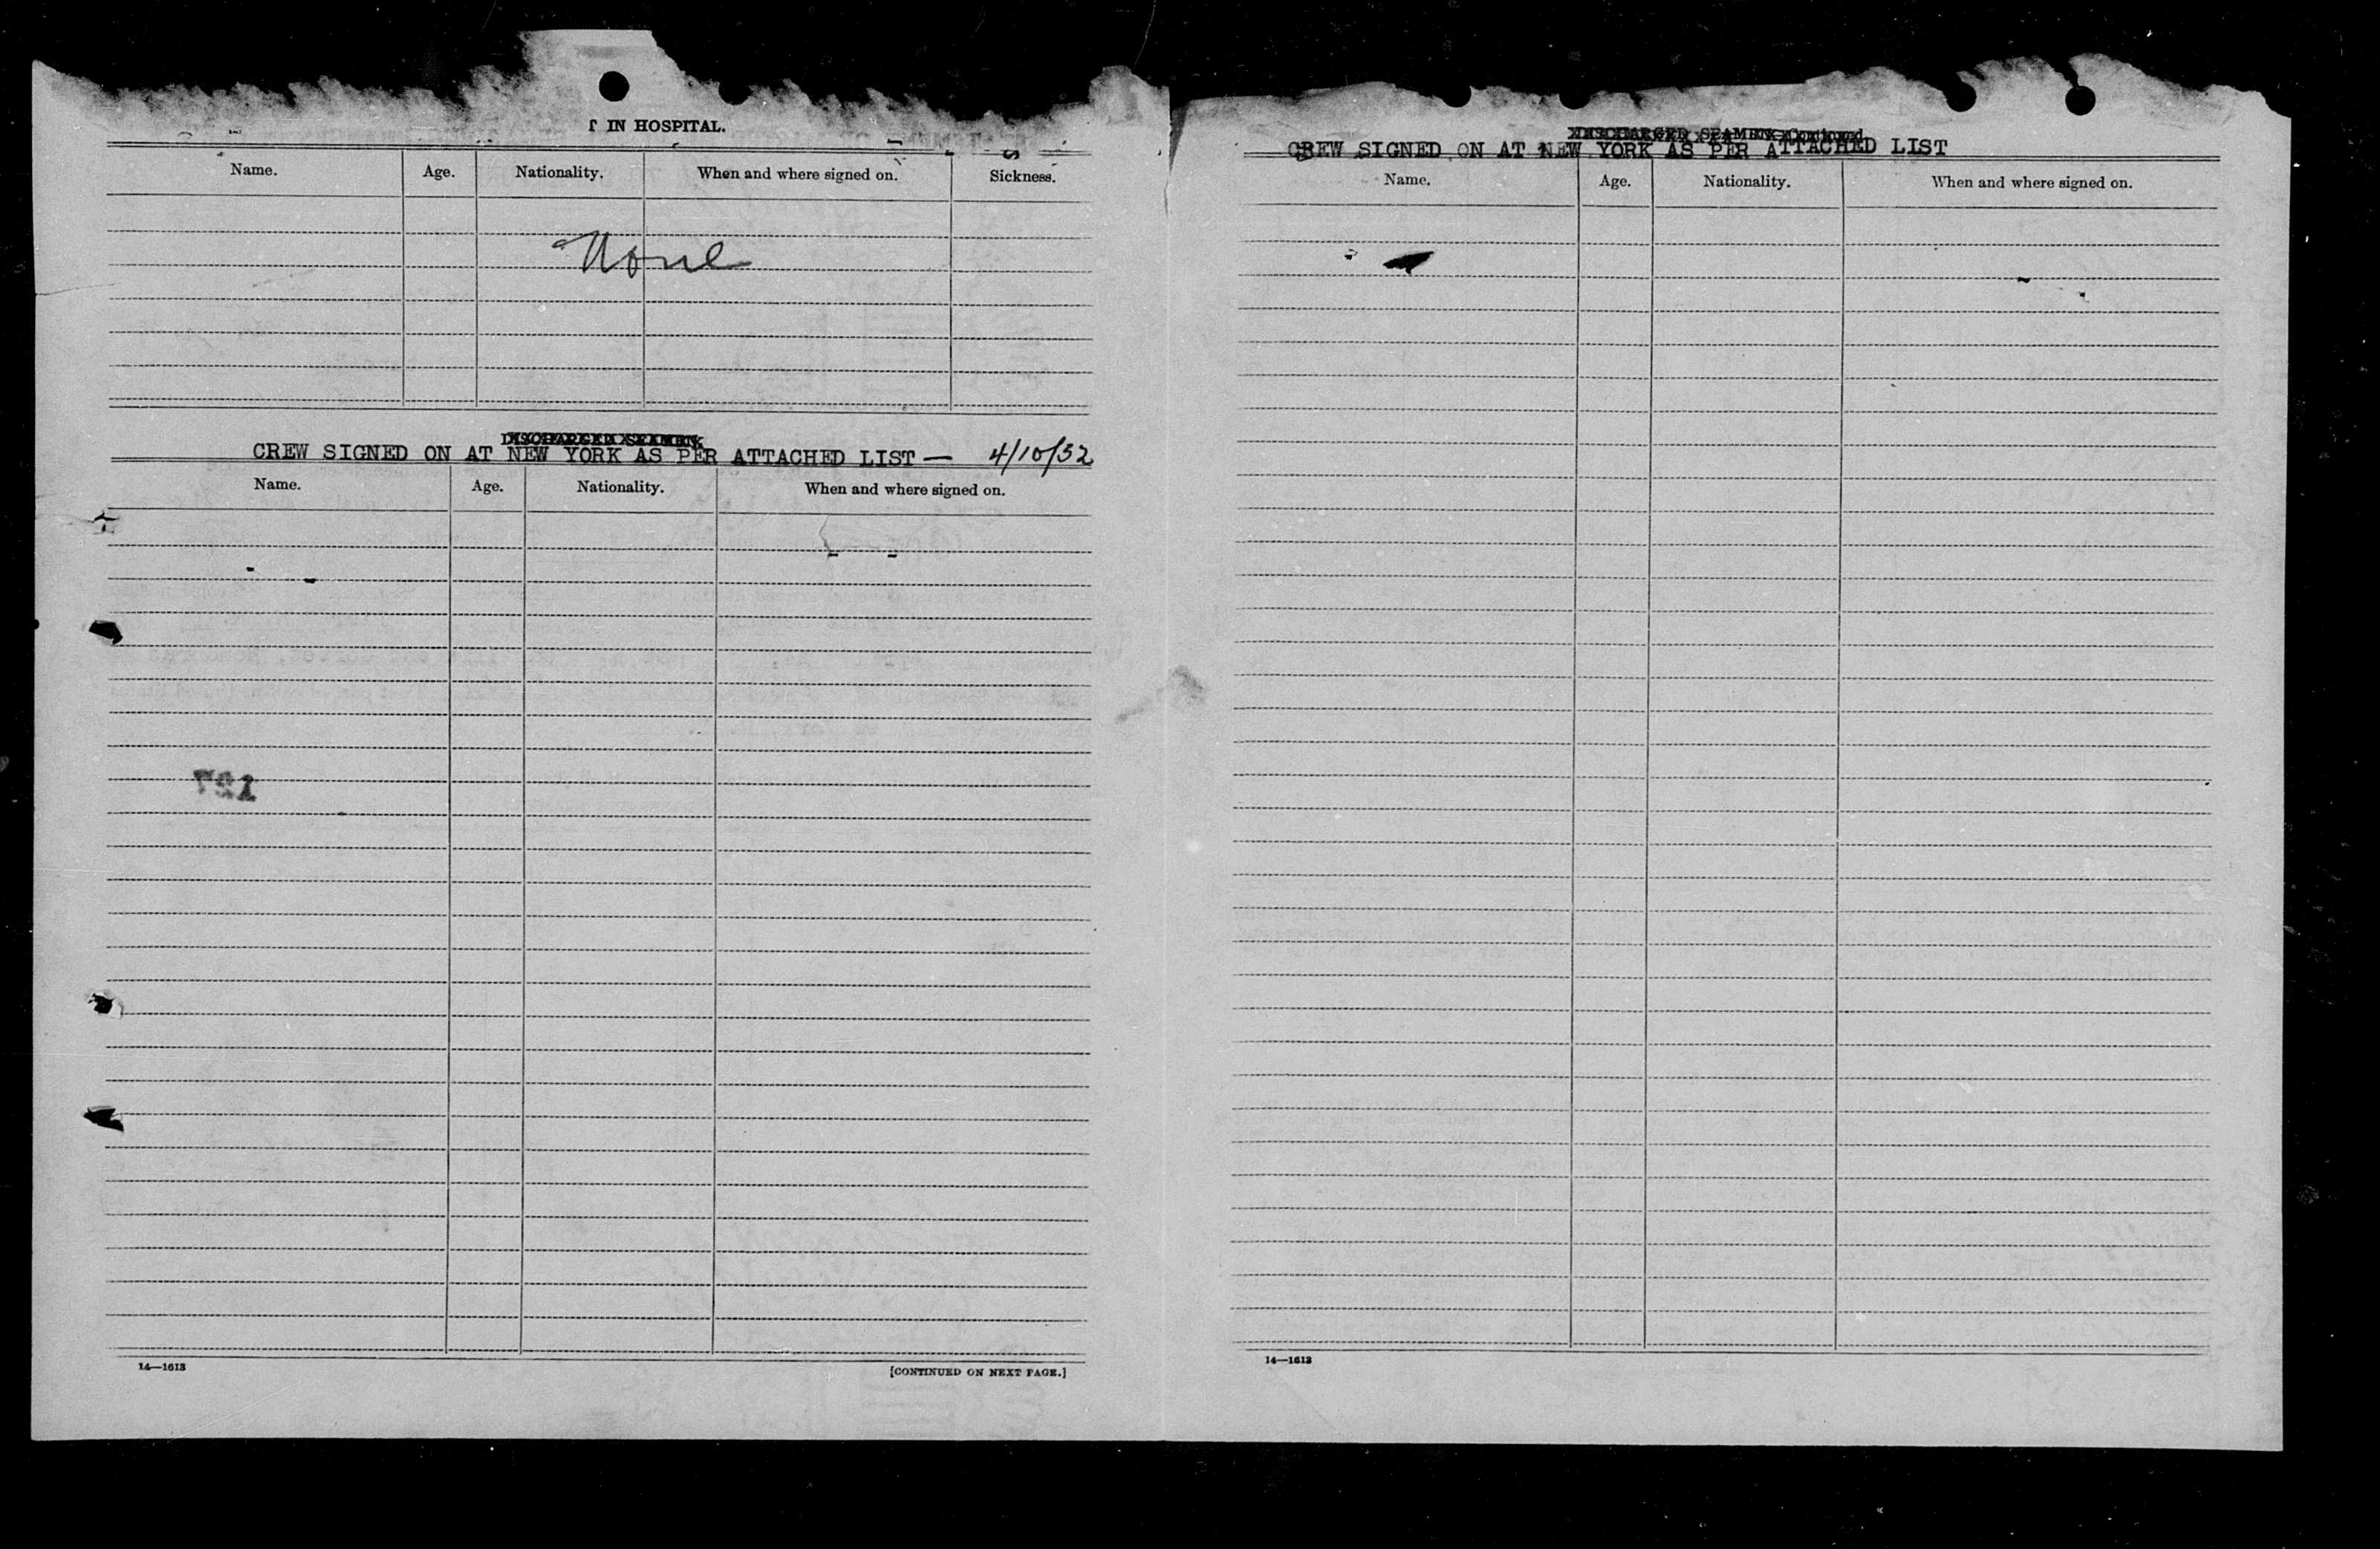 IN HOSPITAL.
Name. Age. Nationality. When and where signed on. Sickness.
None
DISCHARGED SEAMEN
CREW SIGNED ON AT NEW YORK AS PER ATTACHED LIST — 4/10/32
Name. Age. Nationality. When and where signed on.
14—1613
[CONTINUED ON NEXT PAGE.]
DISCHARGED SEAMEN—Continued
CREW SIGNED ON AT NEW YORK AS PER ATTACHED LIST
Name. Age. Nationality. When and where signed on.
14—1613